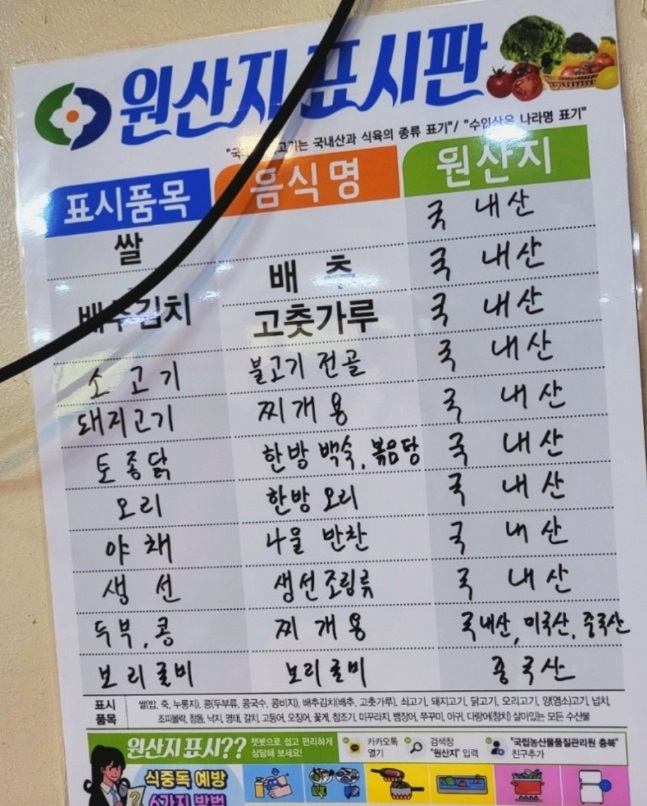 원산지 표시판
고기는 국내산과 식육의 종류 표기"/ "수입산은 나라명 표기"
표시품목 음식명 원산지
쌀 국 내산
배추김치 배 추 국 내산
고춧가루 국 내산
소고기 불고기 전골 국 내산
돼지고기 찌개용 국 내산
토종닭 한방 백숙, 볶음탕 국 내산
오리 한방 오리 국 내산
야채 나물 반찬 국 내산
생선 생선조림류 국 내산
두부, 콩 찌개용 국내산, 미국산, 중국산
보리굴비 보리굴비 중국산
표시 쌀(밥, 죽, 누룽지), 콩(두부류, 콩국수, 콩비지), 배추김치(배추, 고춧가루), 쇠고기, 돼지고기, 닭고기, 오리고기, 양(염소)고기, 넙치,
품목 조피볼락, 참돔, 낙지, 명태, 갈치, 고등어, 오징어, 꽃게, 참조기, 미꾸라지, 뱀장어, 쭈꾸미, 아귀, 다랑어(참치) 살아있는 모든 수산물
원산지 표시?? 챗봇으로 쉽고 편리하게 카카오톡 검색창 "국립농산물품질관리원 충북"
상담해 보세요! 열기 "원산지" 입력 친구추가
식중독 예방
6가지 방법